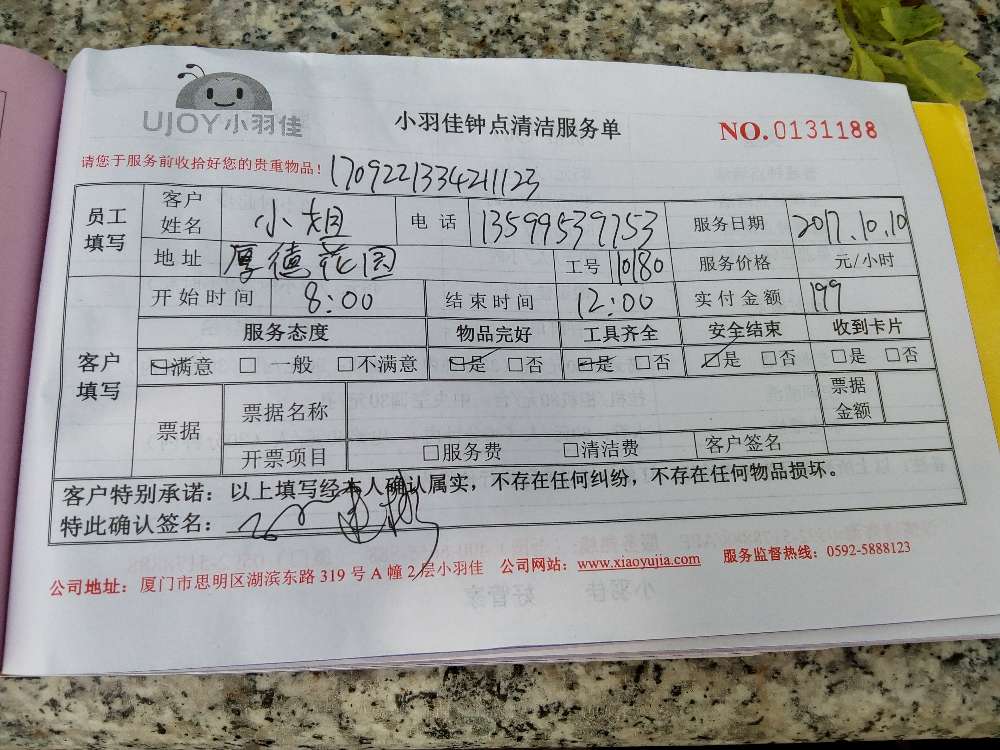 UJOY小羽佳
小羽佳钟点清洁服务单
NO.0131188
请您于服务前收拾好您的贵重物品!
170922133421123
员工填写 客户姓名 小姐 电话 13599539753 服务日期 2017.10.10
地址 厚德花园 工号 11080 服务价格 元/小时
开始时间 8:00 结束时间 12:00 实付金额 199
客户填写 服务态度 物品完好 工具齐全 安全结束 收到卡片
☑满意 □ 一般 □不满意 ☑是 □否 ☑是 □否 ☑是 □否 □是 □否
票据 票据名称 票据金额
开票项目 □服务费 □清洁费 客户签名
客户特别承诺:以上填写经本人确认属实,不存在任何纠纷,不存在任何物品损坏。
特此确认签名:
公司地址:厦门市思明区湖滨东路319号A幢2层小羽佳 公司网站:www.xiaoyujia.com 服务监督热线:0592-5888123